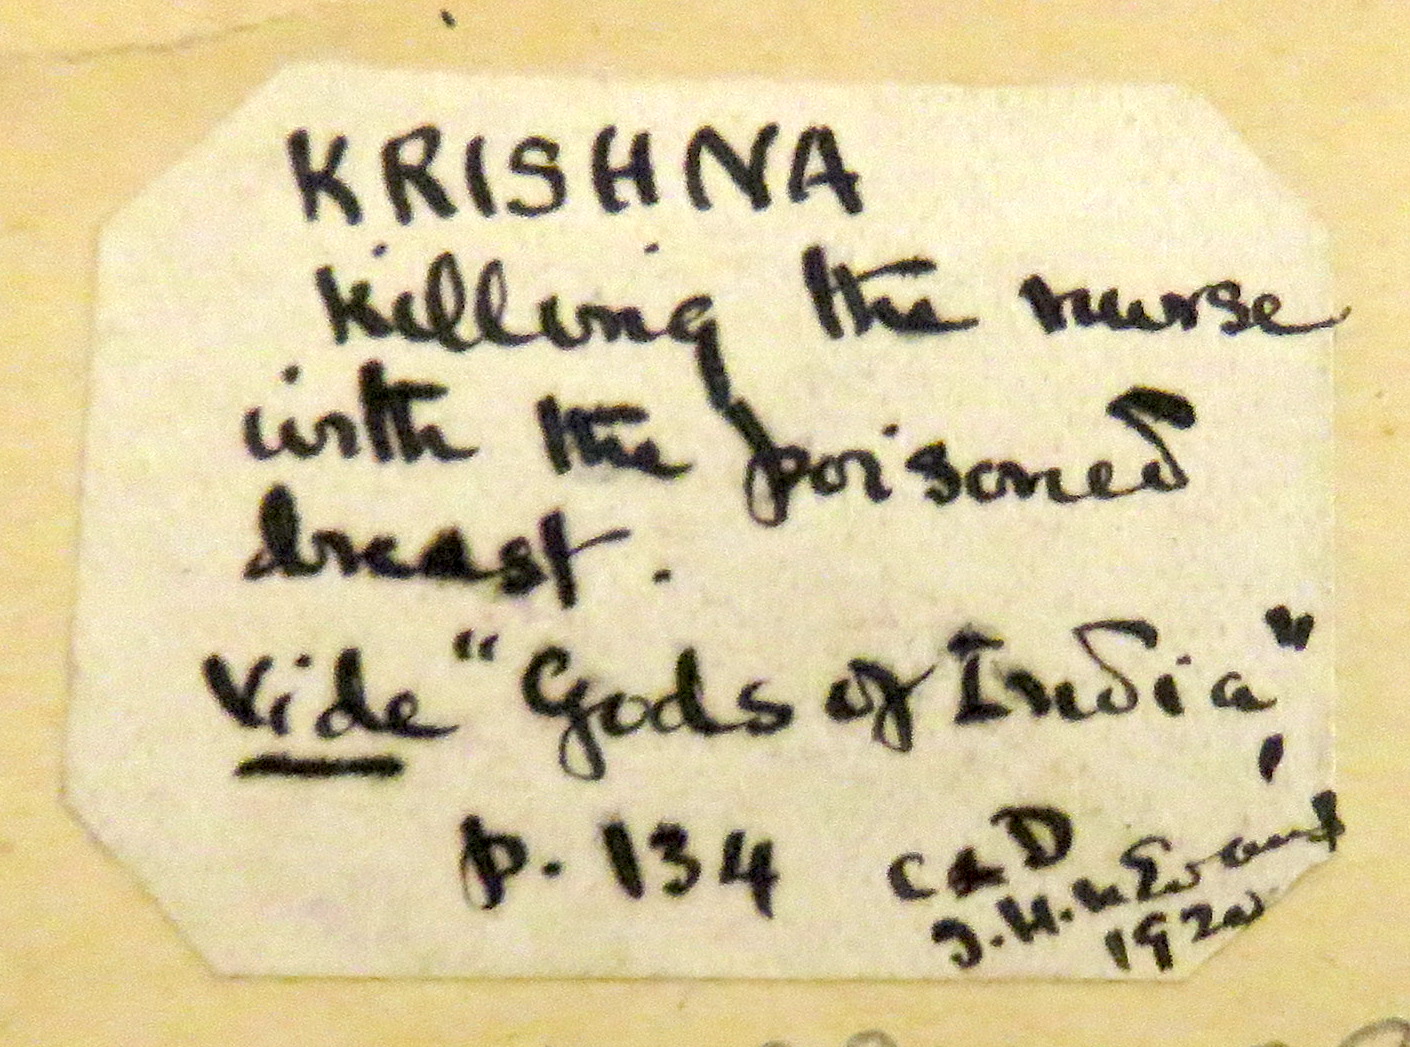 KRISHNA
killing the nurse
with the poisoned
breast.
Vide "Gods of India",
p. 134
C & D
J. H. N. Evans
1920